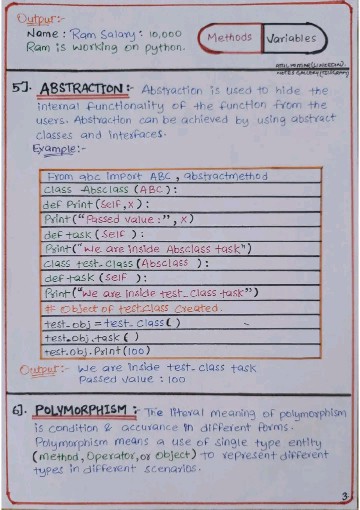 Output:-
Name : Ram Salary : 10,000
Ram is working on python.
Methods Variables
5]. ABSTRACTION :- Abstraction is used to hide the
internal functionality of the function from the
users. Abstraction can be achieved by using abstract
classes and interfaces.
Example:-
From abc import ABC , abstractmethod
Class Absclass (ABC) :
def Print (Self, x) :
Print ("Passed value :", x)
def task (Self ) :
Print ("We are inside Absclass task")
Class test_class (Absclass ) :
def task (Self ) :
Print ("We are Inside test_class task")
# Object of testclass Created.
test_obj = test_class ( )
test_obj. task ( )
test_obj. Print (100)
Output:- We are inside test_class task
Passed value : 100
6]. POLYMORPHISM :- The litoral meaning of polymorphism
is condition & accurance in different forms.
Polymorphism means a use of single type entity
(method, Operator, or Object) to represent different
types in different scenarios.
3